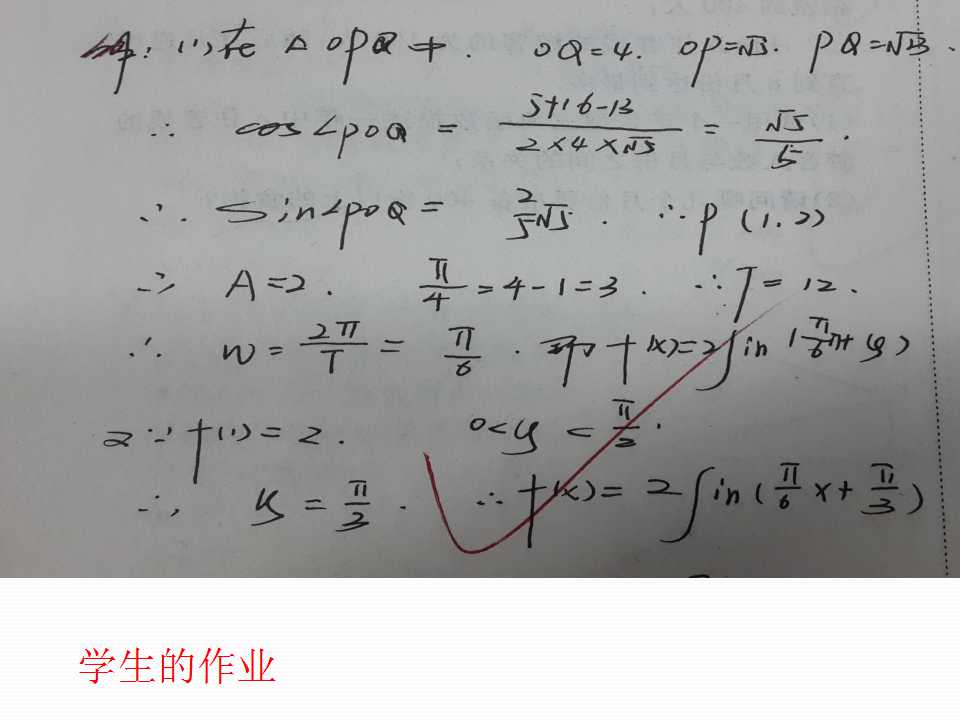 解: (1) 在 △OPQ 中. OQ=4. OP=√5. PQ=√13.
∴ cos∠POQ = (5+16-13)/(2×4×√5) = √5/5.
∴ sin∠POQ = 2/5√5. ∴ P (1.2)
∴ A=2. π/4 = 4-1=3. ∴ T=12.
∴ w = 2π/T = π/6. 即 f(x)=2sin(π/6x+φ)
又∵ f(1)=2. 0<φ<π/2.
∴ φ=π/3. ∴ f(x)=2sin(π/6x+π/3)
学生的作业